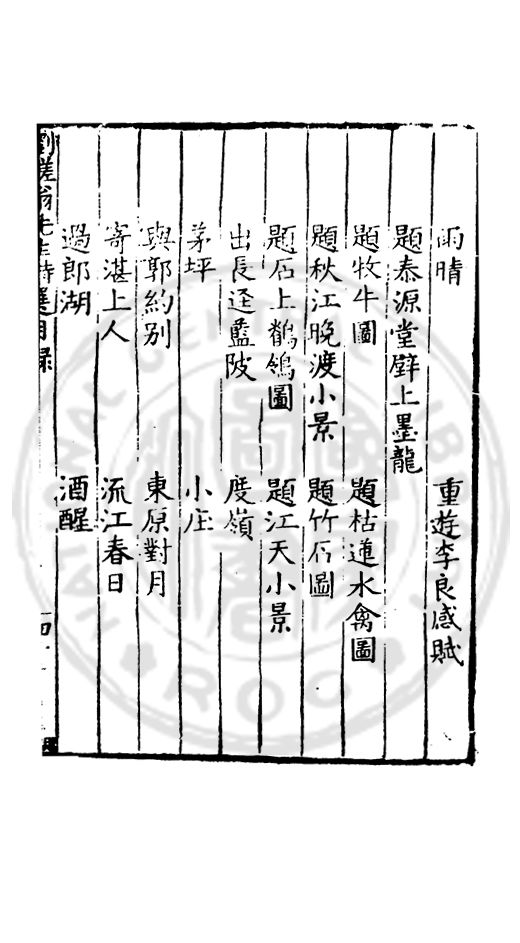 雨晴　重遊李良感賦
題泰源堂壁上墨龍
題牧牛圖　題枯蓮水禽圖
題秋江晚渡小景　題竹石圖
題石上鶺鴒圖　題江天小景
出長逕藍陂　度嶺
茅坪　小庄
與郭約別　東原對月
寄湛上人　流江春日
過郎湖　酒醒
劉槎翁先生詩選目録